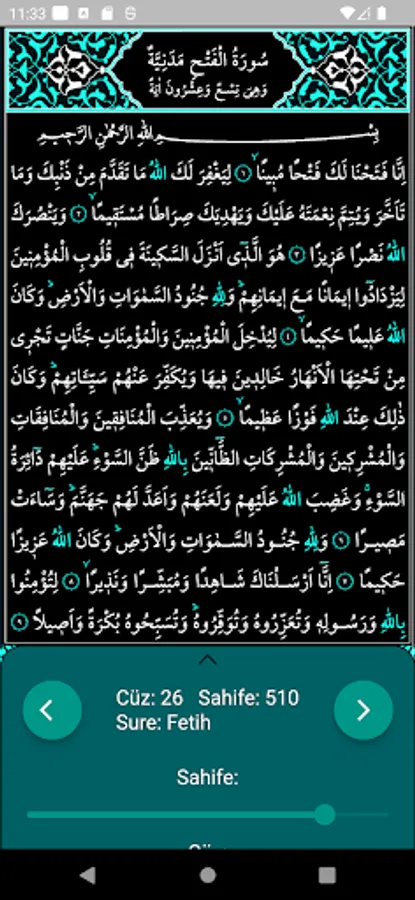 11:33
سُورَةُ الْفَتْحِ مَدَنِيَّةٌ
وَهِيَ تِسْعٌ وَعِشْرُونَ اٰيَةً
بِسْمِ اللّٰهِ الرَّحْمٰنِ الرَّحٖيمِ
اِنَّا فَتَحْنَا لَكَ فَتْحًا مُبٖينًاۙ ﴿١﴾ لِيَغْفِرَ لَكَ اللّٰهُ مَا تَقَدَّمَ مِنْ ذَنْبِكَ وَمَا
تَاَخَّرَ وَيُتِمَّ نِعْمَتَهُ عَلَيْكَ وَيَهْدِيَكَ صِرَاطًا مُسْتَقٖيمًاۙ ﴿٢﴾ وَيَنْصُرَكَ
اللّٰهُ نَصْرًا عَزٖيزًا ﴿٣﴾ هُوَ الَّذٖٓى اَنْزَلَ السَّكٖينَةَ فٖى قُلُوبِ الْمُؤْمِنٖينَ
لِيَزْدَادُٓوا اٖيمَانًا مَعَ اٖيمَانِهِمْۜ وَلِلّٰهِ جُنُودُ السَّمٰوَاتِ وَالْاَرْضِۜ وَكَانَ
اللّٰهُ عَلٖيمًا حَكٖيمًاۙ ﴿٤﴾ لِيُدْخِلَ الْمُؤْمِنٖينَ وَالْمُؤْمِنَاتِ جَنَّاتٍ تَجْرٖى
مِنْ تَحْتِهَا الْاَنْهَارُ خَالِدٖينَ فٖيهَا وَيُكَفِّرَ عَنْهُمْ سَيِّـَٔاتِهِمْۜ وَكَانَ
ذٰلِكَ عِنْدَ اللّٰهِ فَوْزًا عَظٖيمًاۙ ﴿٥﴾ وَيُعَذِّبَ الْمُنَافِقٖينَ وَالْمُنَافِقَاتِ
وَالْمُشْرِكٖينَ وَالْمُشْرِكَاتِ الظَّٓانّٖينَ بِاللّٰهِ ظَنَّ السَّوْءِۜ عَلَيْهِمْ دَٓائِرَةُ
السَّوْءِۚ وَغَضِبَ اللّٰهُ عَلَيْهِمْ وَلَعَنَهُمْ وَاَعَدَّ لَهُمْ جَهَنَّمَۜ وَسَٓاءَتْ
مَصٖيرًا ﴿٦﴾ وَلِلّٰهِ جُنُودُ السَّمٰوَاتِ وَالْاَرْضِۜ وَكَانَ اللّٰهُ عَزٖيزًا
حَكٖيمًا ﴿٧﴾ اِنَّٓا اَرْسَلْنَاكَ شَاهِدًا وَمُبَشِّرًا وَنَذٖيرًاۙ ﴿٨﴾ لِتُؤْمِنُوا
بِاللّٰهِ وَرَسُولِهٖ وَتُعَزِّرُوهُ وَتُوَقِّرُوهُۜ وَتُسَبِّحُوهُ بُكْرَةً وَاَصٖيلًا ﴿٩﴾
Cüz: 26 Sahife: 510
Sure: Fetih
Sahife: